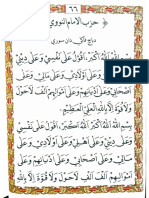 ٦٦
حزب الامام النووي
دباچ فاݢي دان سوري
بِسْمِ اللّٰهِ اَللّٰهُ اَكْبَرُ، اَقُوْلُ عَلَى نَفْسِيْ وَعَلَى دِيْنِيْ
وَعَلَى اَهْلِيْ وَعَلَى اَوْلَادِيْ وَعَلَى مَالِيْ وَعَلَى
اَصْحَابِيْ وَعَلَى اَدْيَانِهِمْ وَعَلَى اَمْوَالِهِمْ اَلْفَ لَاحَوْلَ
وَلَا قُوَّةَ اِلَّا بِاللّٰهِ الْعَلِيِّ الْعَظِيْمِ.
بِسْمِ اللّٰهِ اَللّٰهُ اَكْبَرُ، اَللّٰهُ اَكْبَرُ، اَقُوْلُ عَلَى
نَفْسِيْ وَعَلَى دِيْنِيْ وَعَلَى اَهْلِيْ وَعَلَى اَوْلَادِيْ
وَعَلَى مَالِيْ وَعَلَى اَصْحَابِيْ وَعَلَى اَدْيَانِهِمْ وَعَلَى
اَمْوَالِهِمْ اَلْفَ اَلْفِ لَاحَوْلَ وَلَا قُوَّةَ اِلَّا بِاللّٰهِ